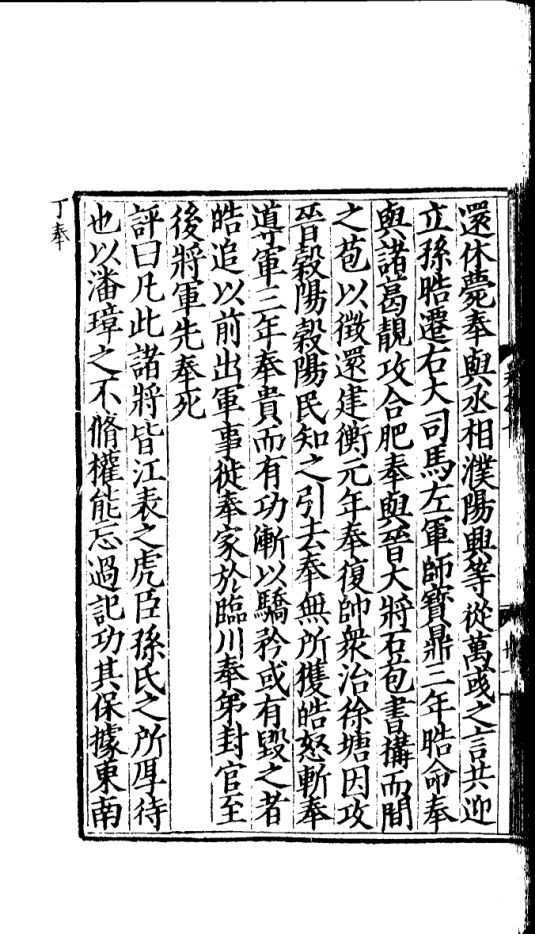 還休薨奉與丞相濮陽興等從萬彧之言共迎
立孫晧遷右大司馬左軍師寶鼎三年晧命奉
與諸葛靚攻合肥奉與晉大將石苞書搆而間
之苞以徵還建衡元年奉復帥衆治徐塘因攻
晉穀陽穀陽民知之引去奉無所獲皓怒斬奉
導軍三年奉貴而有功漸以驕矜或有毀之者
皓追以前出軍事徙奉家於臨川奉弟封官至
後將軍先奉死
評曰凡此諸將皆江表之虎臣孫氏之所厚待
也以潘璋之不脩權能忘過記功其保據東南
丁奉